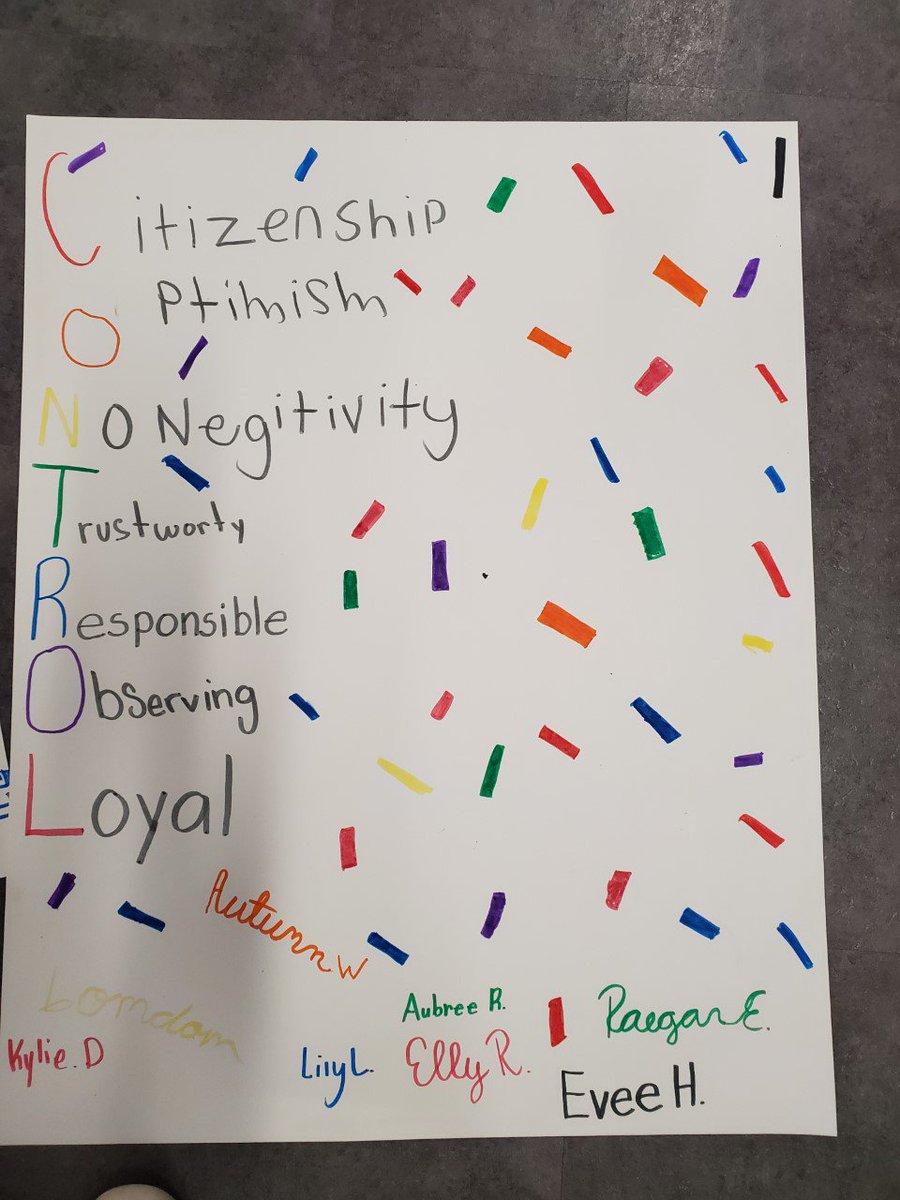 Citizenship
Optimism
No Negitivity
Trustworty
Responsible
Observing
Loyal
Autumn W
Aubree R.
Raegan E.
Kylie. D
Lily L.
Elly R.
Evee H.